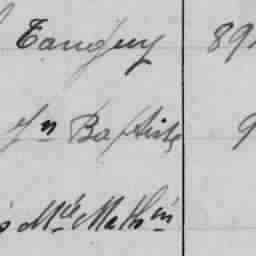 Tanguy 89
Jn Baptiste 9
s Mce Mathin